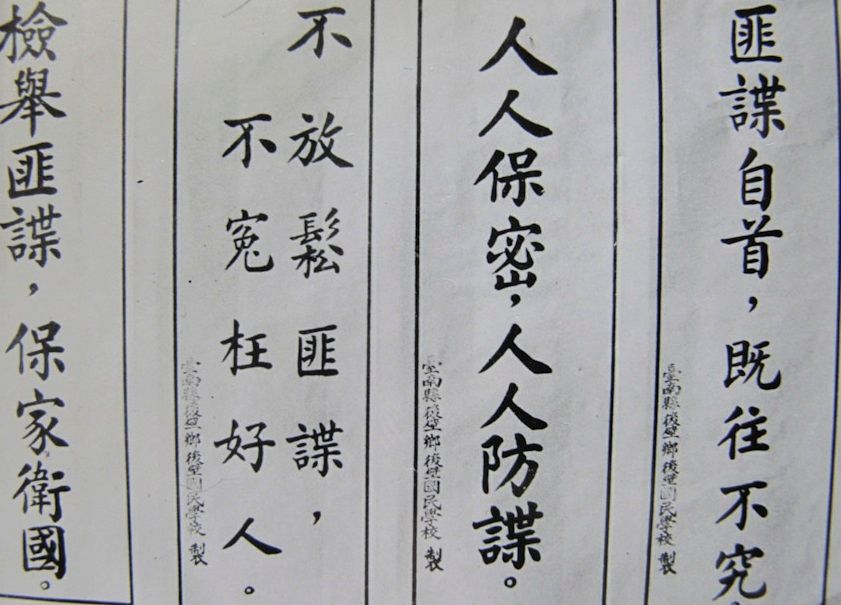 匪諜自首，既往不究
臺南縣後壁鄉後壁國民學校 製
人人保密，人人防諜。
臺南縣後壁鄉後壁國民學校 製
不放鬆匪諜，
不冤枉好人。
臺南縣後壁鄉後壁國民學校 製
檢舉匪諜，保家衛國。